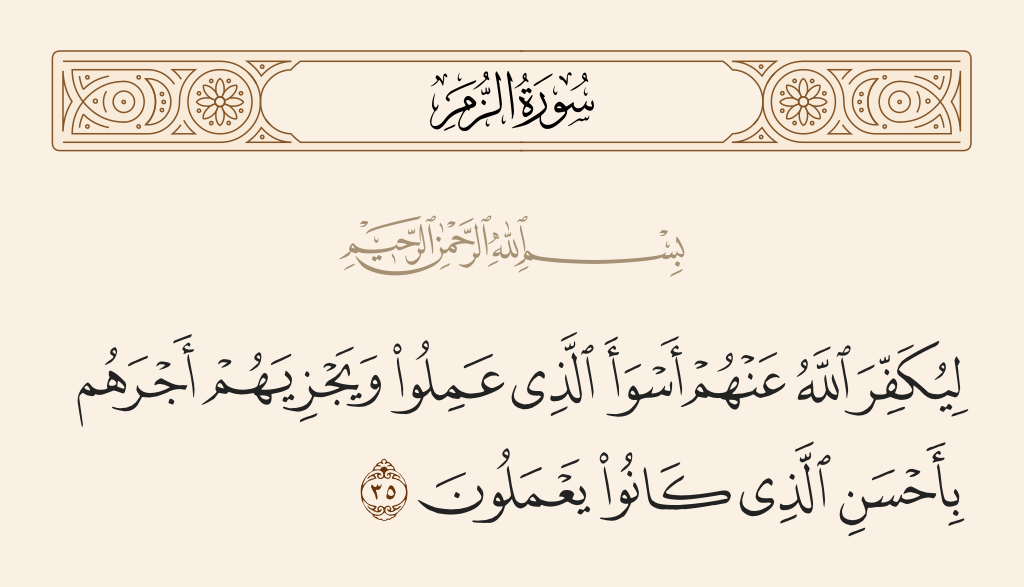 سُورَةُ الزُّمَرِ
بِسْمِ ٱللَّهِ ٱلرَّحْمَٰنِ ٱلرَّحِيمِ
لِيُكَفِّرَ ٱللَّهُ عَنْهُمْ أَسْوَأَ ٱلَّذِى عَمِلُوا۟ وَيَجْزِيَهُمْ أَجْرَهُم
بِأَحْسَنِ ٱلَّذِى كَانُوا۟ يَعْمَلُونَ ٣٥